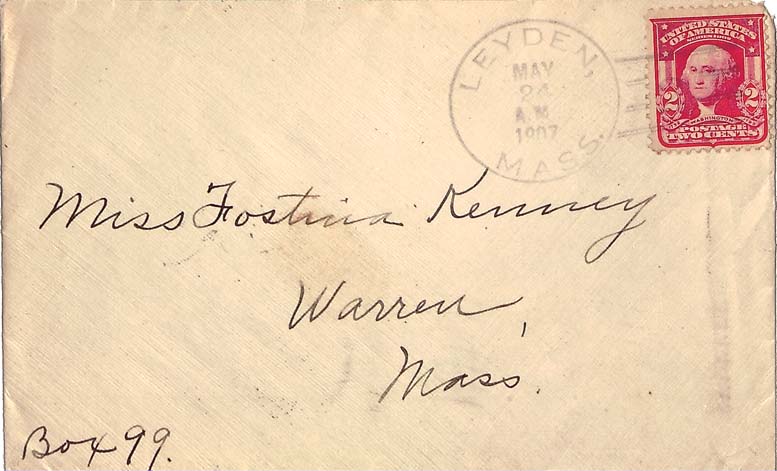 LEYDEN,
MAY
24
A.M.
1907
MASS.
UNITED STATES
OF AMERICA
SERIES 1902
2 2
WASHINGTON
POSTAGE
TWO CENTS
Miss Fostina Kenney
Warren,
Mass.
Box 99.